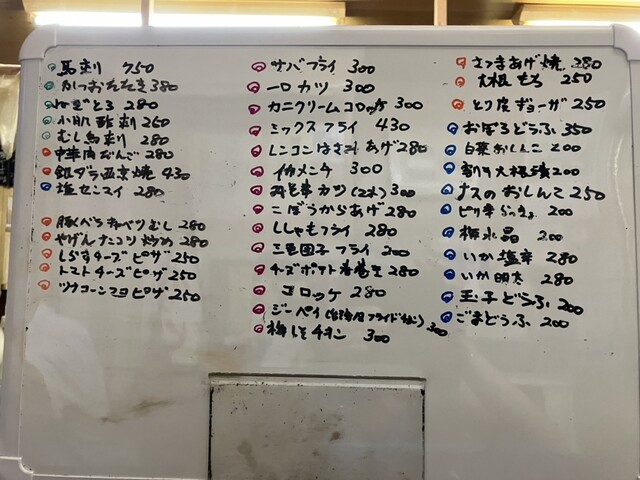 馬刺 750
かつおたたき 380
ねぎとろ 280
小肌酢刺 250
むし鳥刺 280
中華肉だんご 280
銀ダラ西京焼 430
塩センマイ 280
豚バラキャベツむし 280
やげんナンコツ炒め 280
しらすチーズピザ 250
トマトチーズピザ 250
ツナコーンマヨピザ 250
サバフライ 300
一口カツ 300
カニクリームコロッケ 300
ミックスフライ 430
レンコンはさみあげ 280
イカメンチ 300
串カツ(2本) 300
ごぼうからあげ 280
ししゃもフライ 280
三色団子フライ 200
チーズポテト春巻 280
コロッケ 280
ジーパイ(台湾風フライドチキン) 300
梅しそチキン 300
さつまあげ焼 280
大根もち 250
とり皮ギョーザ 250
おぼろどうふ 350
白菜おしんこ 200
割干大根漬 200
ナスのおしんこ 250
ピリ辛らっきょ 200
梅水晶 200
いか塩辛 280
いか明太 280
玉子どうふ 200
ごまどうふ 200